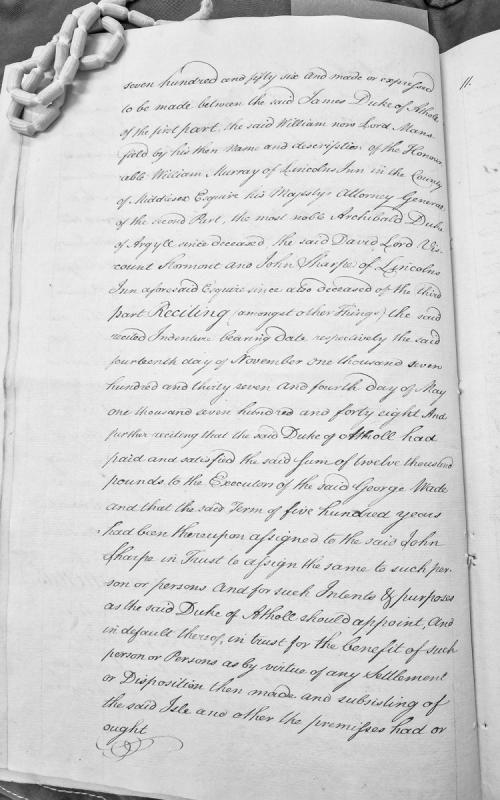 seven hundred and fifty six and made or expressed
to be made between the said James Duke of Atholl
of the first part, the said William now Lord Mans
field by his then Name and description of the Honour
able William Murray of Lincolns Inn in the County
of Middlesex Esquire his Majestys Attorney General
of the second Part, the most noble Archibald Duke
of Argyll since deceased, the said David Lord Vis
count Stormont and John Sharpe of Lincolns
Inn aforesaid Esquire since also deceased of the third
part Reciting (amongst other Things) the said
recited Indenture bearing date respectively the said
fourteenth day of November one thousand seven
hundred and thirty seven and fourth day of May
one thousand seven hundred and forty eight And
further reciting that the said Duke of Atholl had
paid and satisfied the said sum of twelve thousand
pounds to the Executors of the said George Wade
and that the said Term of five hundred years
had been thereupon assigned to the said John
Sharpe in Trust to assign the same to such per-
son or persons and for such Intents & purposes
as the said Duke of Atholl should appoint, and
in default thereof, in trust for the benefit of such
person or Persons as by virtue of any Settlement
or Disposition then made and subsisting of
the said Isle and other the premisses had or
ought
11.